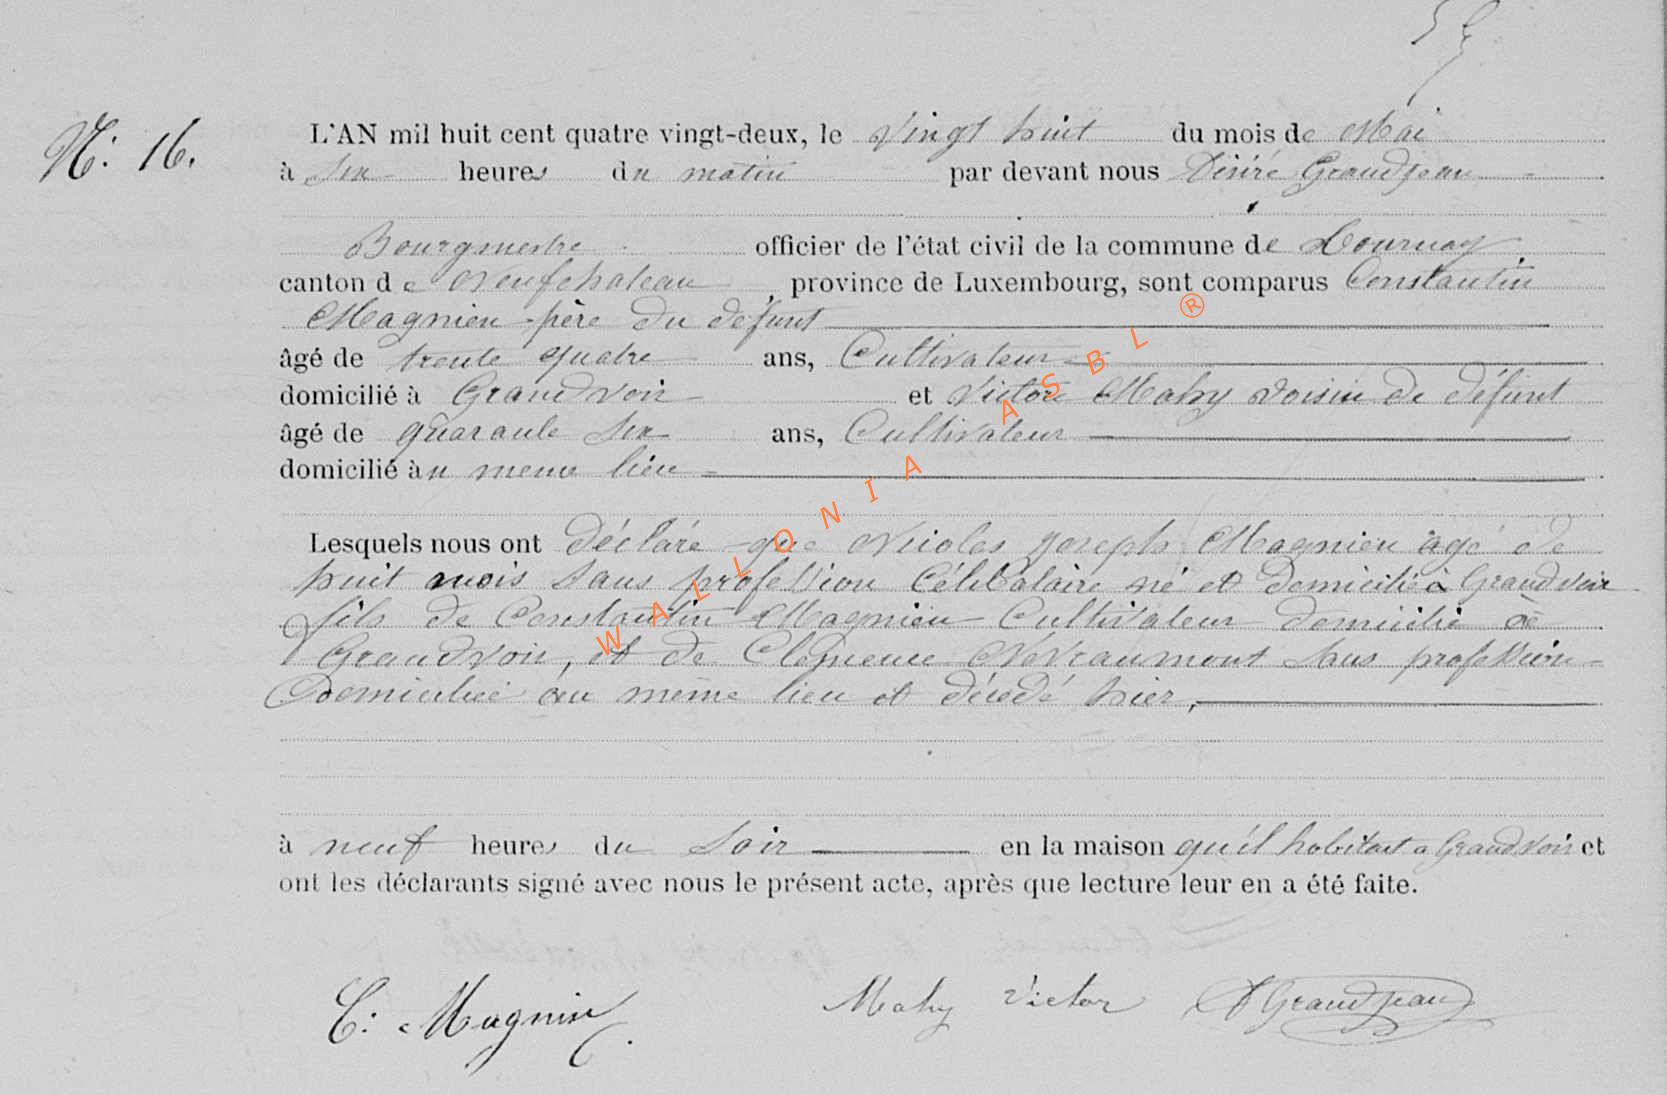 N: 16.
L'AN mil huit cent quatre vingt-deux, le vingt huit du mois de Mai
à six heures du matin par devant nous Désiré Grandjean
Bourgmestre officier de l'état civil de la commune de Tournay
canton de Neufchateau, province de Luxembourg, sont comparus Constantin
Magnien père du défunt
âgé de trente quatre ans, Cultivateur
domicilié à Grandvoir et Victor Mahy voisin de défunt
âgé de quarante six ans, Cultivateur
domicilié au meme lieu
Lesquels nous ont déclaré que Nicolas Joseph Magnien agé de
huit mois sans profession Célibataire né et domicilié à Grandvoir
fils de Constantin Magnien Cultivateur domicilié à
Grandvoir, et de Clémence Nevraumont sans profession
Domiciliée au même lieu et décédé hier,
à neuf heures du soir en la maison qu'il habitait a Grandvoir et
ont les déclarants signé avec nous le présent acte, après que lecture leur en a été faite.
C: Magnien Mahy Victor D Grandjean
WALLONIA ASBL ®